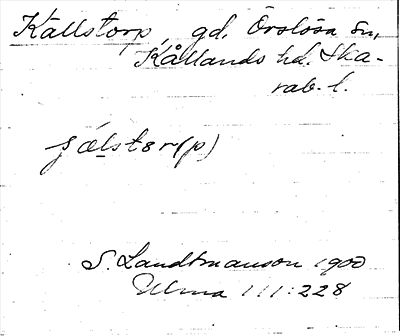 Källstorp, gd. Örslösa sn,
Kållands hd. Ska-
rab. l.
S. Landtmanson 1900
Ulma 111:228